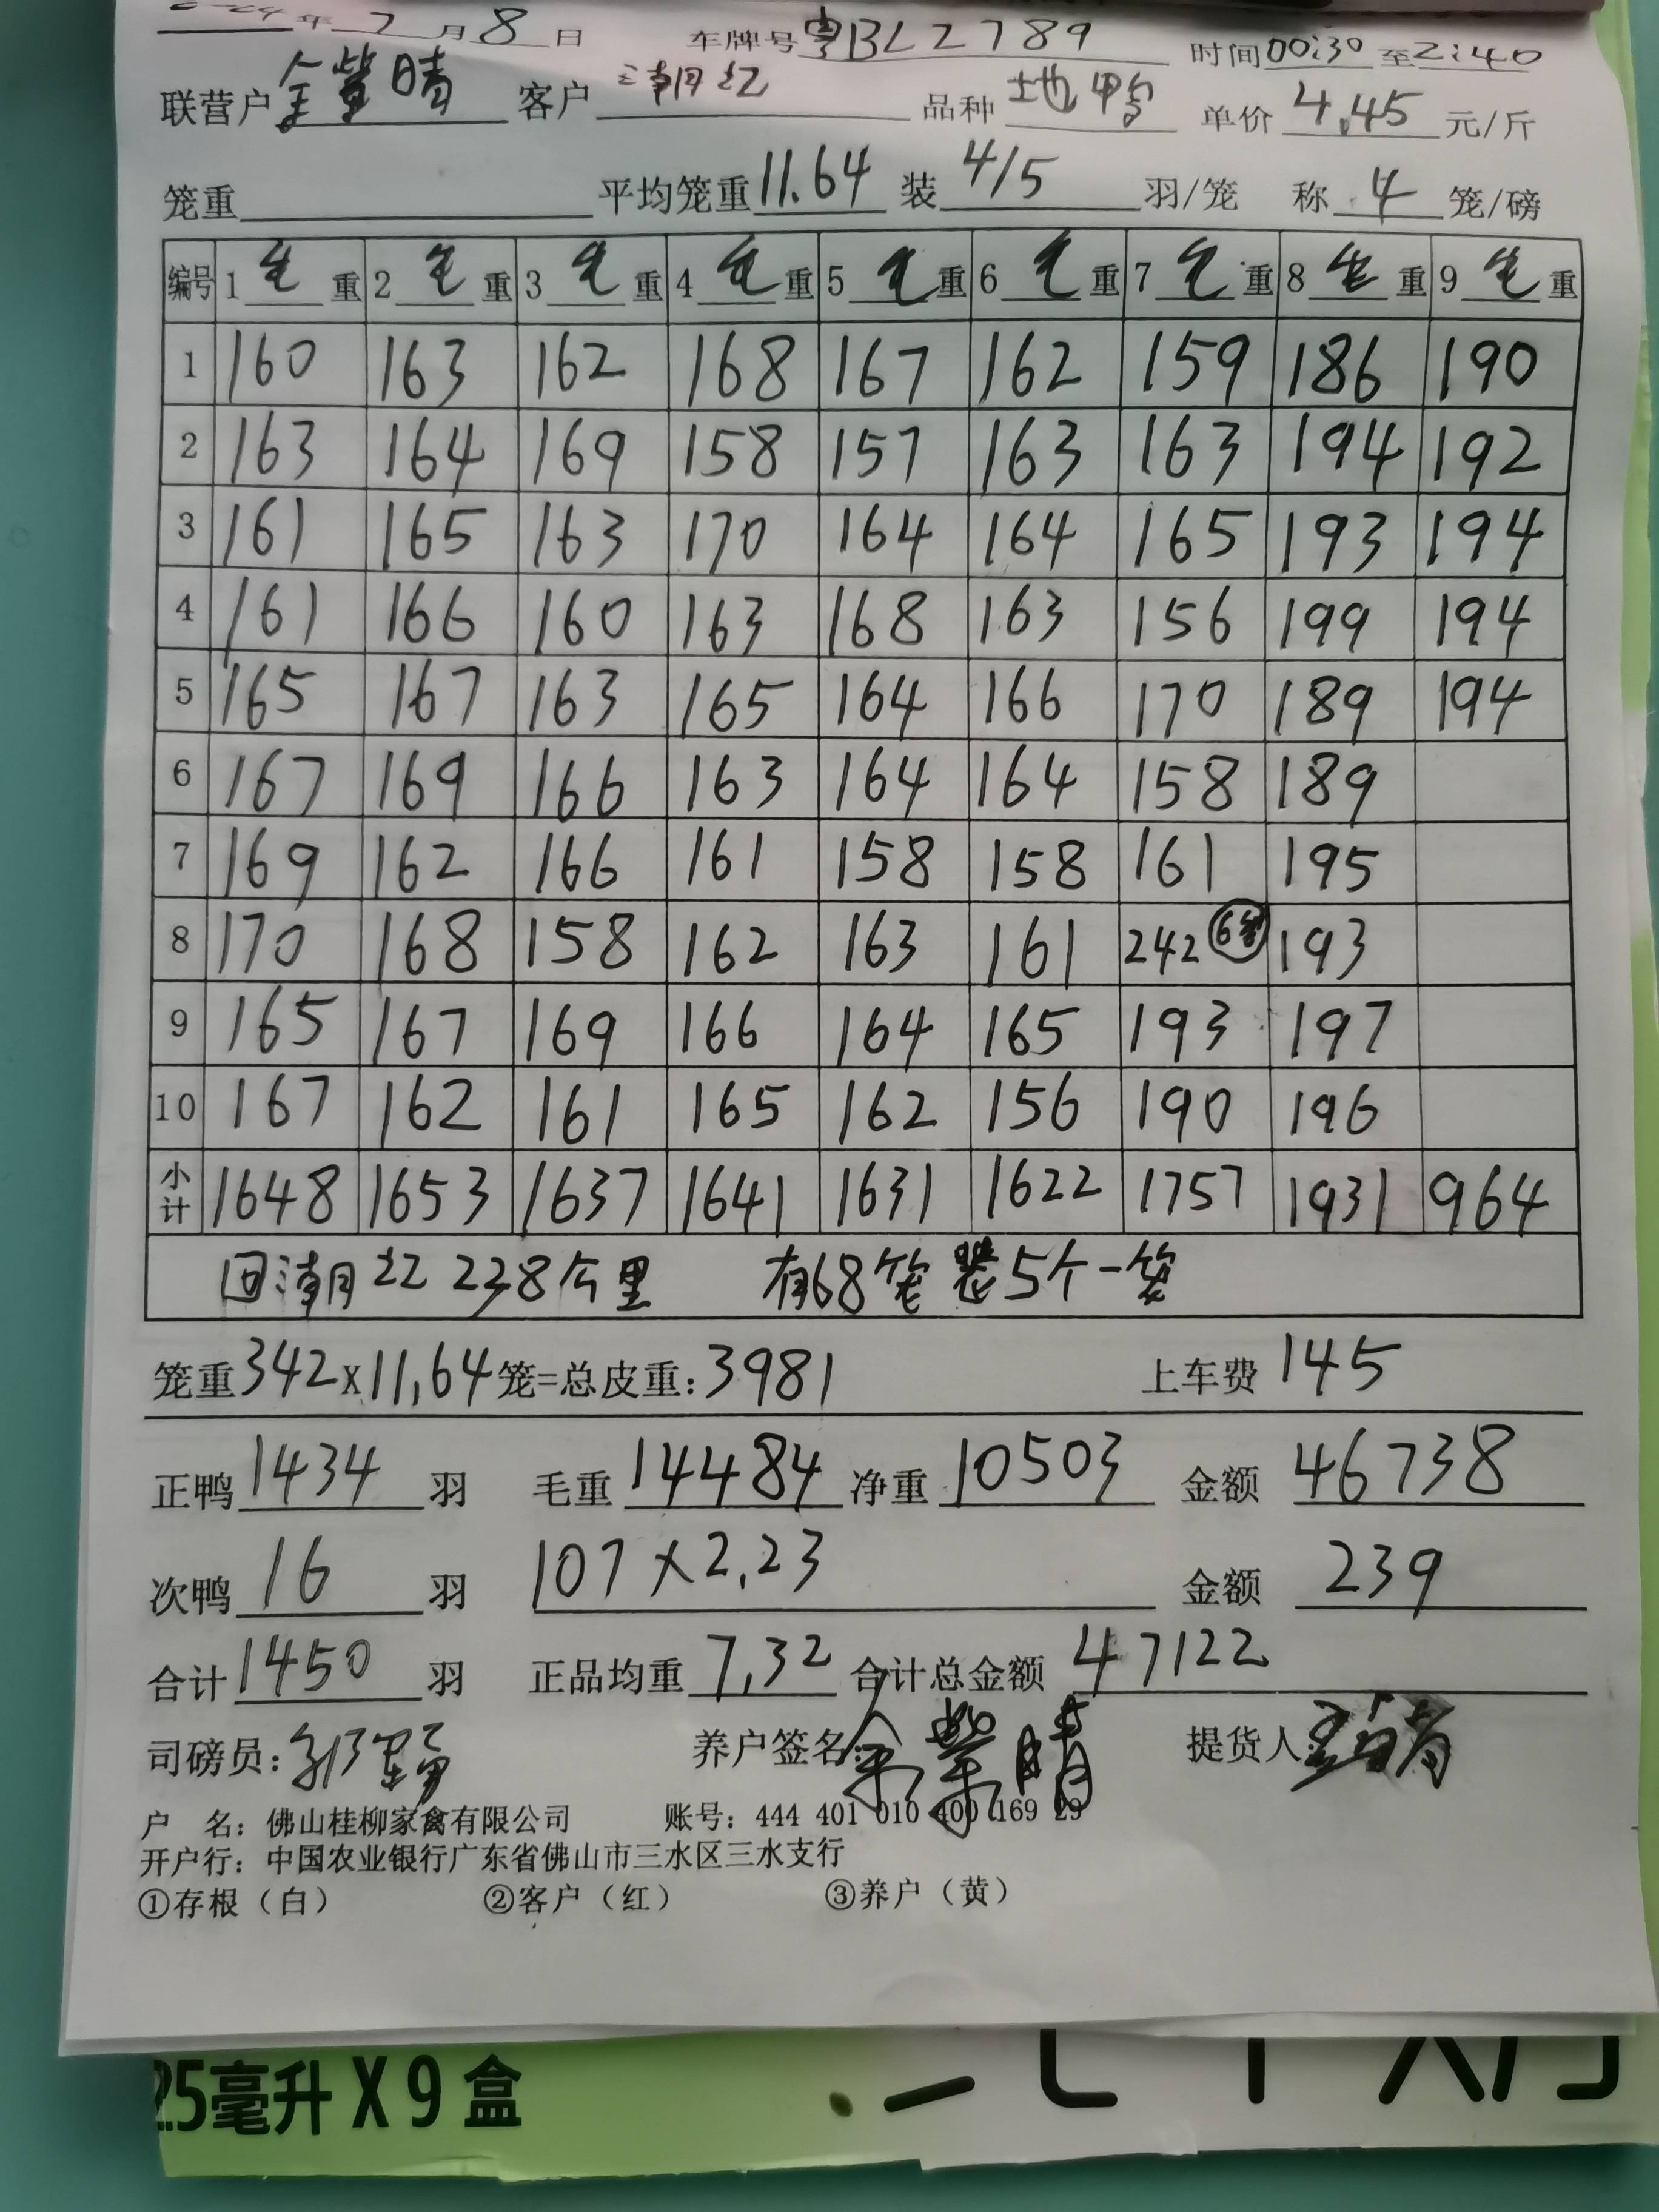 年 7 月 8 日 车牌号 粤BL2789 时间 00:30 至 2:40
联营户 余紫晴 客户 潮红 品种 土也鸭 单价 4.45 元/斤
笼重 平均笼重 11.64 装 4/5 羽/笼 称 4 笼/磅
编号 1 毛 重 2 毛 重 3 毛 重 4 毛 重 5 毛 重 6 毛 重 7 毛 重 8 毛 重 9 毛 重
1 160 163 162 168 167 162 159 186 190
2 163 164 169 158 157 163 163 194 192
3 161 165 163 170 164 164 165 193 194
4 161 166 160 163 168 163 156 199 194
5 165 167 163 165 164 166 170 189 194
6 167 169 166 163 164 164 158 189
7 169 162 166 161 158 158 161 195
8 170 168 158 162 163 161 242 6笼 193
9 165 167 169 166 164 165 193 197
10 167 162 161 165 162 156 190 196
小计 1648 1653 1637 1641 1631 1622 1757 1931 964
回潮红 238公里 有68笼装5个一笼
笼重 342 x 11.64 笼=总皮重: 3981 上车费 145
正鸭 1434 羽 毛重 14484 净重 10503 金额 46738
次鸭 16 羽 107 × 2.23 金额 239
合计 1450 羽 正品均重 7.32 合计总金额 47122
司磅员: 养户签名: 余紫晴 提货人:
户 名: 佛山桂柳家禽有限公司 账号: 444 401 010 400 169 29
开户行: 中国农业银行广东省佛山市三水区三水支行
①存根（白） ②客户（红） ③养户（黄）
25毫升X9盒